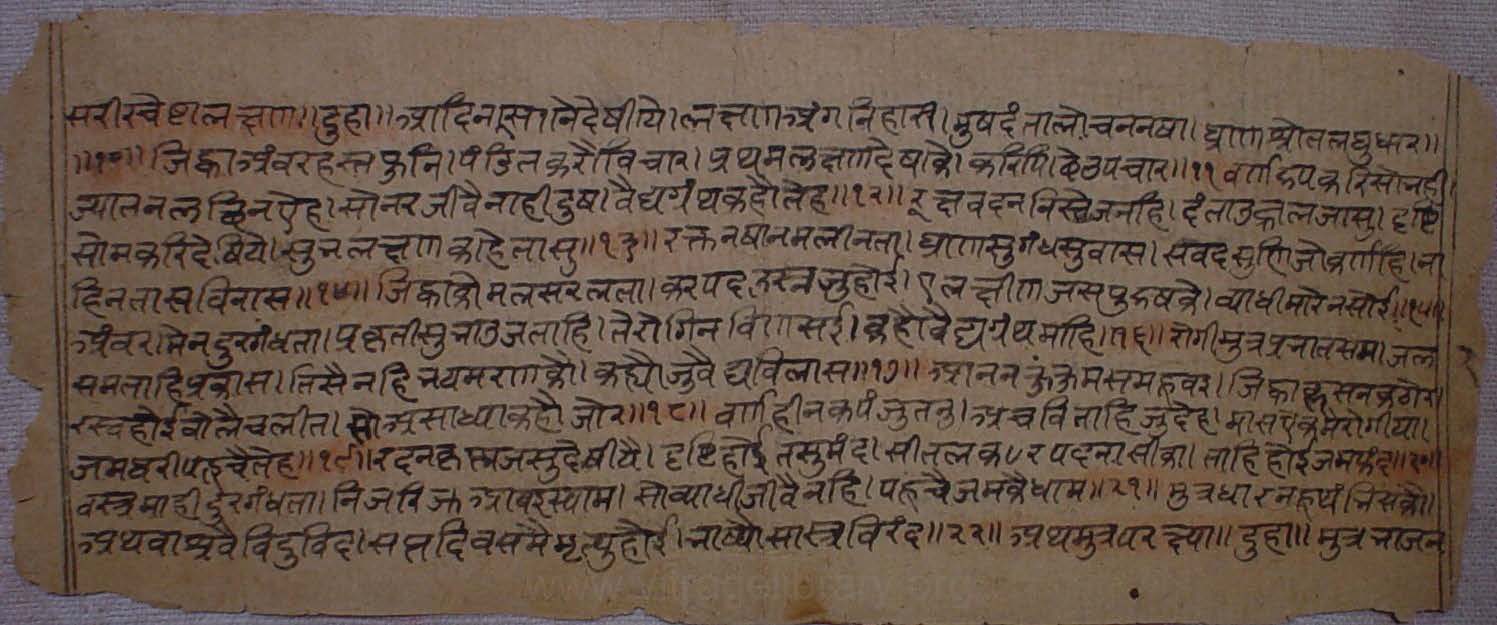 सरीरचेष्टालक्षण॥ दुहा॥ आदिनासूतनिदेषीये। लक्षण अंग निहार। मुष दंता लोचन नषा। घ्राण श्रोत लघु धार॥
॥१०॥ जिह्वा अंवर हस्त फुनि। पंडित करौ विचार। प्रथम लक्षण देषिके। करिपिछे उपचार॥११ वर्ण रूप करि सो नही।
ज्यातन लछिन ऐह। सो नर जीवै नाही दुष। वैद्यग्रंथ कहै लेह॥१२॥ रूक्ष वदन निस्तेज जनहि। दंता उकाल जासु। दृष्टि
सोम करि देषिये। सुन लक्षण कहि तासु॥१३॥ रक्त नषान मलीनता। घ्राण सुगंध सुवास। सवद सुणि जो कर्णहि। ता
हि न तास विनास॥१४॥ जिह्वा कोमल सरलता। कर पद उस्न जु होई। ए लक्षीण जस पुरुषके। व्याधी मारे न सोई॥१५॥
अंवर मैन दुरगंधता। प्रकृती सुचाउ जताहि। ते रोगिन विणसई। कहो वैद्यग्रंथ माहि।१६॥ रोगी मुत्र प्रचात समा जल
समताहि प्रकास। तिसै नहि चय मरणकौ। कह्यौ जु वैद्यविलास॥१७॥ आनन कुंकुम सम हवइ। जिह्वा कृसन कठोर।
रस्व होई वोलै चलीत। सो असाध्या कहै जोर॥१८॥ वर्ण हीन रूपं जु तनु। अरुचविताहि जु देह। मास एक मै रोगीया।
जमघरी पहुचै तेह॥१९॥ रदन कृस्न जसु देषीयै। दृष्टि होई तसु मंद। सीतल कर पद नासीका। ताहि होई जमफंद॥२०॥
वस्त्र माही दुरगंधता। निजरि जु आवइ स्याम। सो व्याधी जीवै नहि। पहुचै जमकै धाम॥२१॥ मुत्र धार न हूयं निसकौ।
अथवा श्रवै विदुविद। सप्त दिवस मै मृत्यु होई। भाष्यो सास्त्र विरंद॥२२॥ अथ मुत्र परक्ष्या॥ दुहा॥ मुत्र भाजन
www.vjragelibrary.org